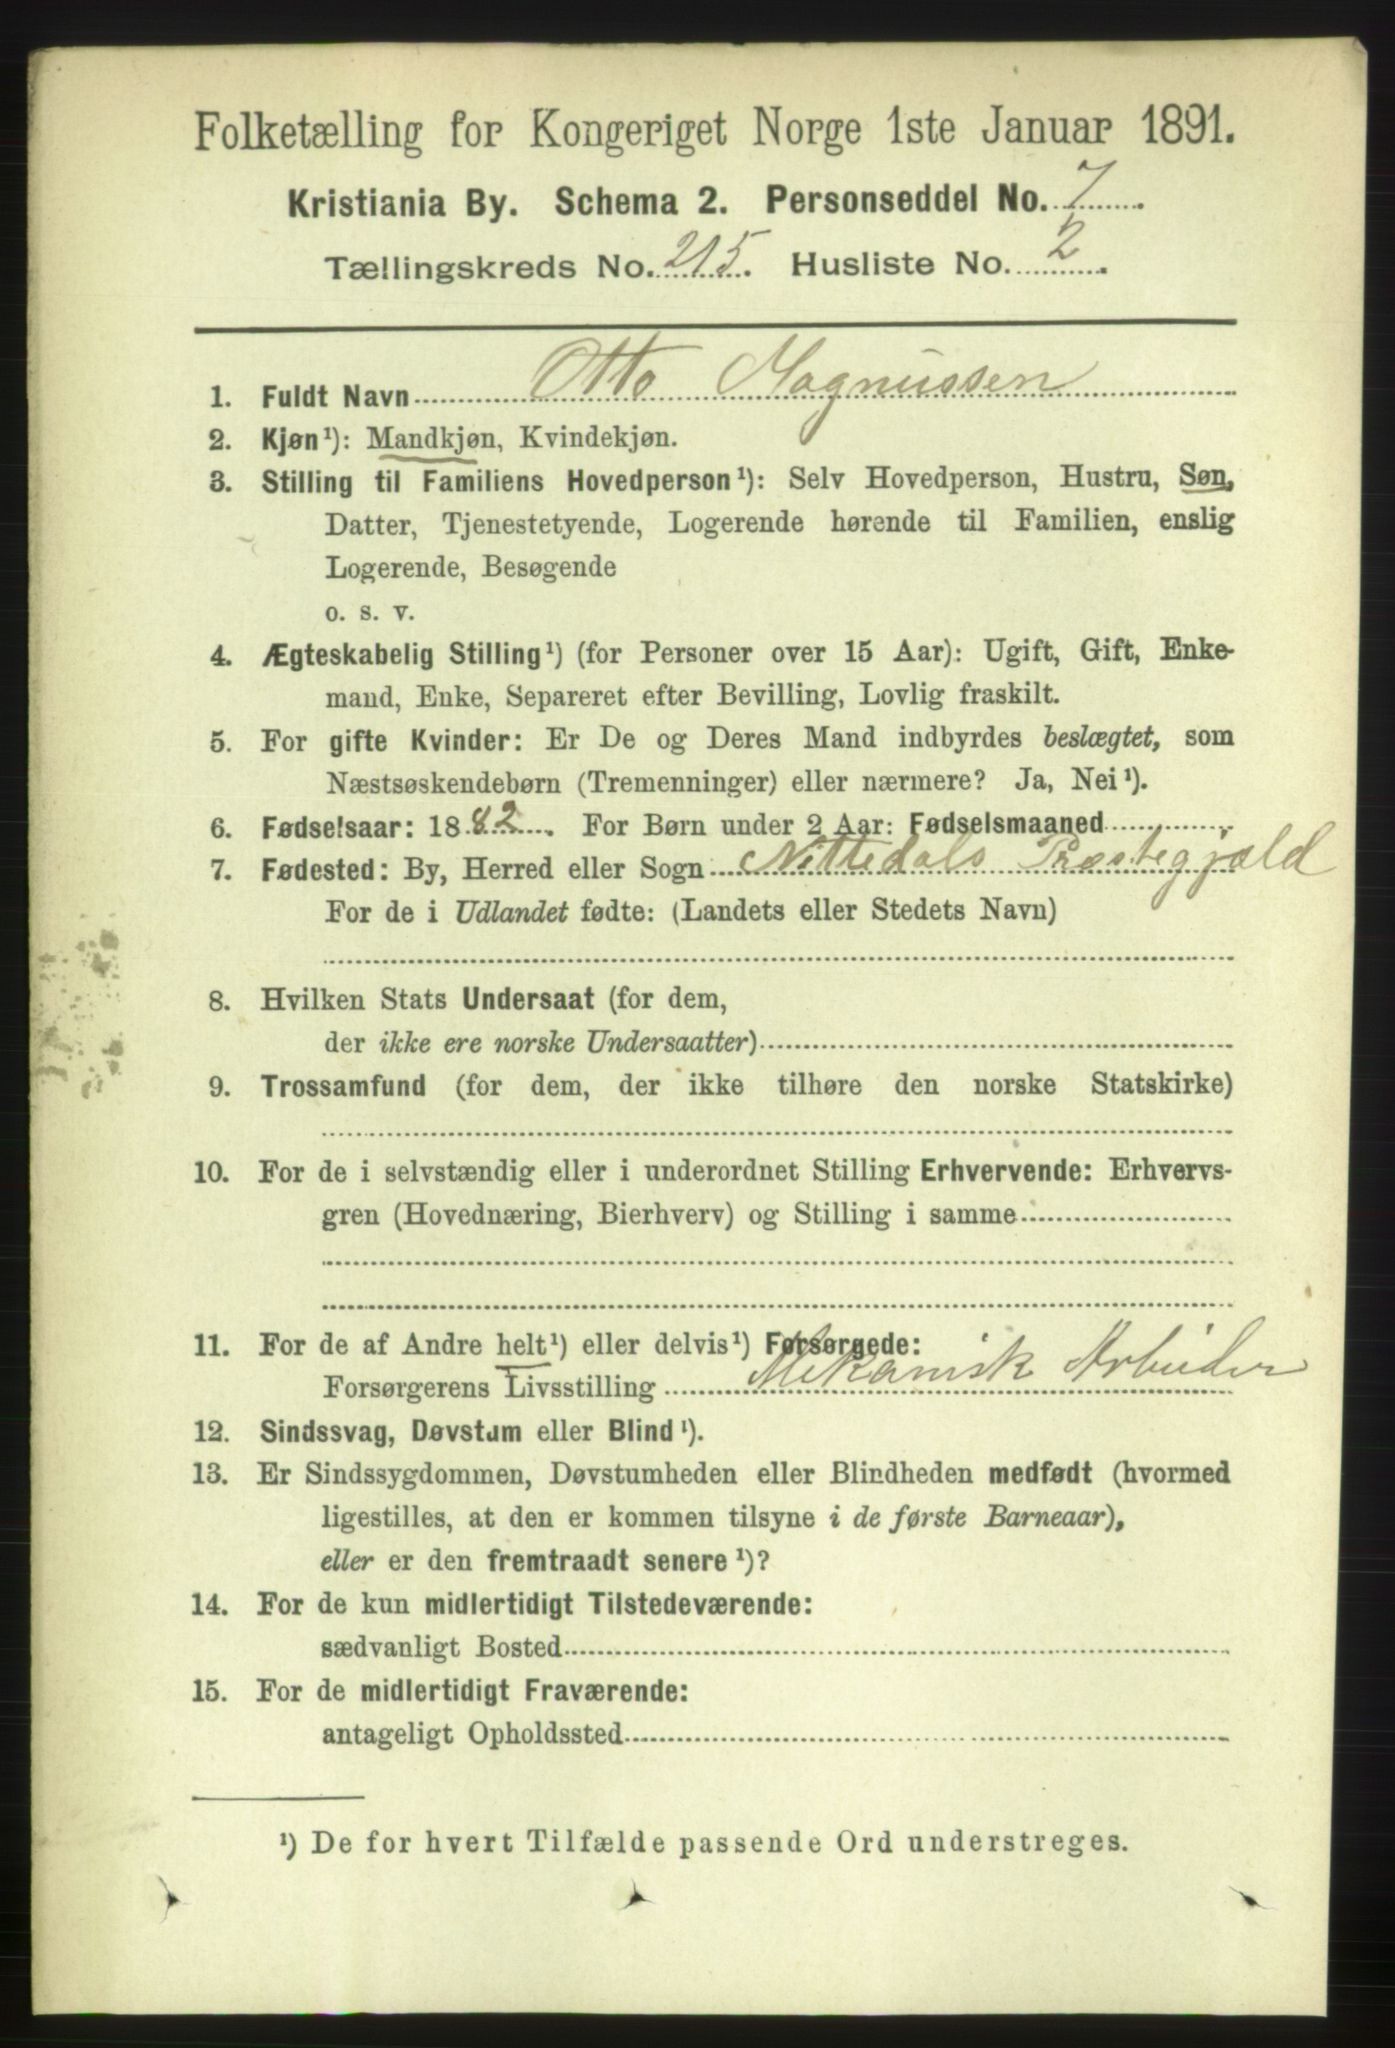 Folketælling for Kongeriget Norge 1ste Januar 1891.
Kristiania By. Schema 2. Personseddel No. 7
Tællingskreds No. 215. Husliste No. 2.
1. Fuldt Navn Otto Magnussen
2. Kjøn¹): Mandkjøn, Kvindekjøn.
3. Stilling til Familiens Hovedperson¹): Selv Hovedperson, Hustru, Søn,
Datter, Tjenestetyende, Logerende hørende til Familien, enslig
Logerende, Besøgende
o. s. v.
4. Ægteskabelig Stilling¹) (for Personer over 15 Aar): Ugift, Gift, Enke-
mand, Enke, Separeret efter Bevilling, Lovlig fraskilt.
5. For gifte Kvinder: Er De og Deres Mand indbyrdes beslægtet, som
Næstsøskendebørn (Tremenninger) eller nærmere? Ja, Nei¹).
6. Fødselsaar: 1882. For Børn under 2 Aar: Fødselsmaaned
7. Fødested: By, Herred eller Sogn Nittedals Præstegjæld
For de i Udlandet fødte: (Landets eller Stedets Navn)
8. Hvilken Stats Undersaat (for dem,
der ikke ere norske Undersaatter)
9. Trossamfund (for dem, der ikke tilhøre den norske Statskirke)
10. For de i selvstændig eller i underordnet Stilling Erhvervende: Erhvervs-
gren (Hovednæring, Bierhverv) og Stilling i samme
11. For de af Andre helt¹) eller delvis¹) Forsørgede:
Forsørgerens Livsstilling Mekanisk Arbeider
12. Sindssvag, Døvstum eller Blind¹).
13. Er Sindssygdommen, Døvstumheden eller Blindheden medfødt (hvormed
ligestilles, at den er kommen tilsyne i de første Barneaar),
eller er den fremtraadt senere¹)?
14. For de kun midlertidigt Tilstedeværende:
sædvanligt Bosted
15. For de midlertidigt Fraværende:
antageligt Opholdssted
¹) De for hvert Tilfælde passende Ord understreges.